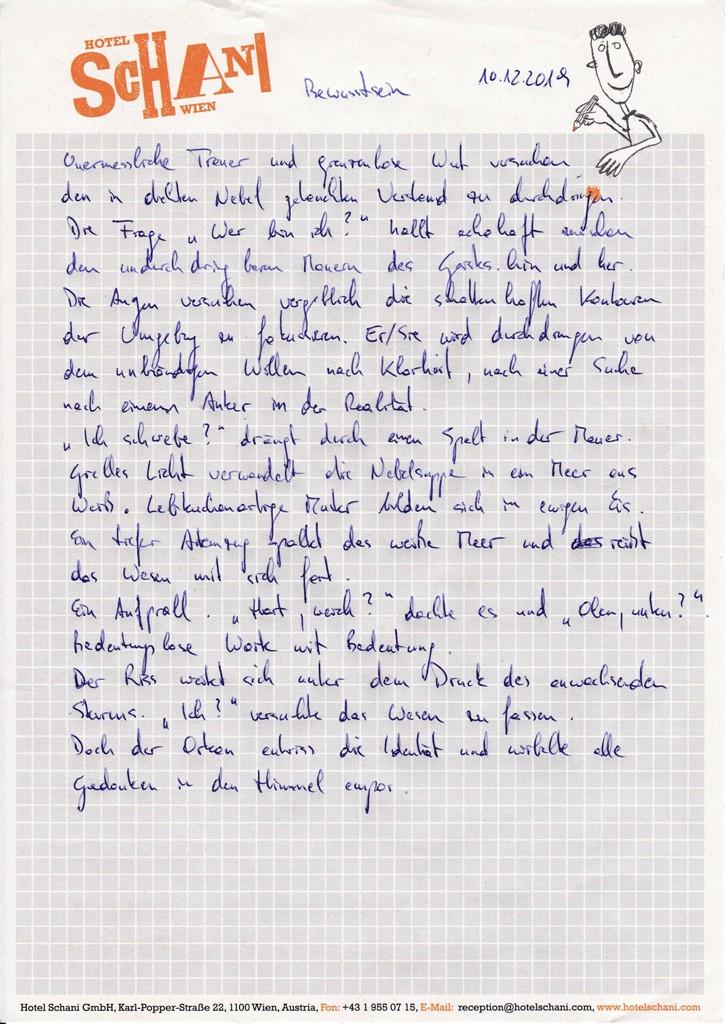 HOTEL
SCHANI
WIEN
Bewusstsein
10.12.2019
Unermessliche Trauer und grenzenlose Wut versuchen
den in dichten Nebel getauchten Verstand zu durchdringen.
Die Frage „Wer bin ich?“ hallt echohaft zwischen
den undurchdringbaren Mauern des Geistes hin und her.
Die Augen versuchen vergeblich die schattenhaften Konturen
der Umgebung zu fokussieren. Er/Sie wird durchdrungen von
dem unbändigen Willen nach Klarheit, nach einer Suche
nach einem Anker in der Realität.
„Ich schwebe?“ drängt durch einen Spalt in der Mauer.
Grelles Licht verwandelt die Nebelsuppe in ein Meer aus
Weiß. Lebkuchenartige Muster bilden sich im ewigen Eis.
Ein tiefer Atemzug spaltet das weiße Meer und reißt
das Wesen mit sich fort.
Ein Aufprall. „Hart, weich?“ dachte es und „Oben, unten?“.
Bedeutungslose Worte mit Bedeutung.
Der Riss weitet sich unter dem Druck des anwachsenden
Sturms. „Ich?“ versuchte das Wesen zu fassen.
Doch der Orkan entriss die Identität und wirbelte alle
Gedanken in den Himmel empor.
Hotel Schani GmbH, Karl-Popper-Straße 22, 1100 Wien, Austria, Fon: +43 1 955 07 15, E-Mail: reception@hotelschani.com, www.hotelschani.com